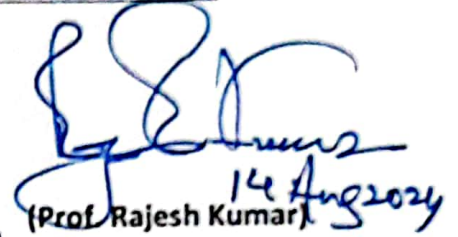 14 Aug 2024
(Prof. Rajesh Kumar)